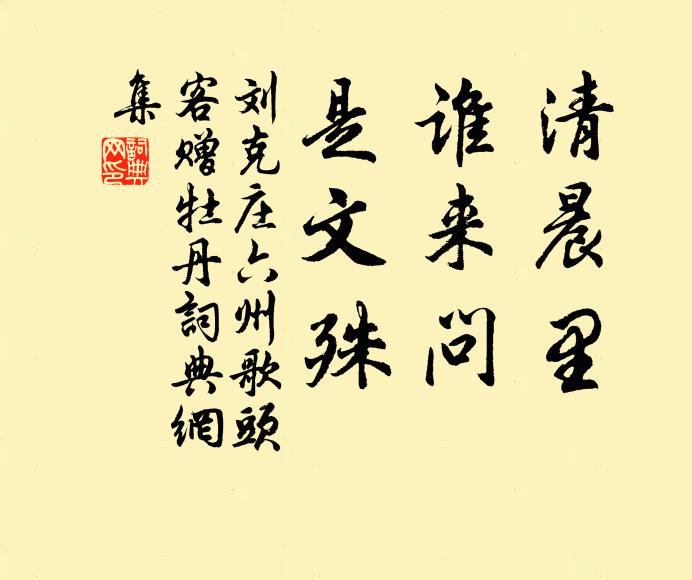 清晨里
谁来问
是文殊
刘克庄六州歌头
客赠牡丹詞典網
集
詞典
网印